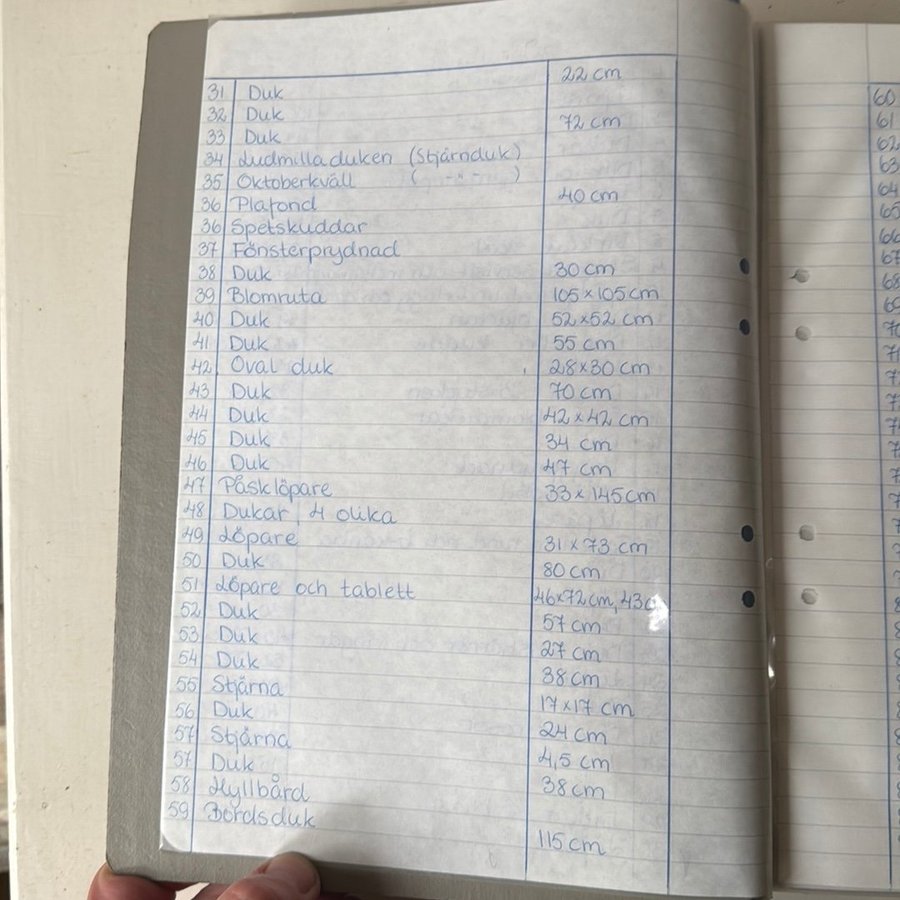 31 Duk 22 cm
32 Duk
33 Duk 72 cm
34 Ludmilladuken (Stjärnduk)
35 Oktoberkväll ( -"- )
36 Plafond 40 cm
36 Spetskuddar
37 Fönsterprydnad
38 Duk 30 cm
39 Blomruta 105×105 cm
40 Duk 52×52 cm
41 Duk 55 cm
42 Oval duk 28×30 cm
43 Duk 70 cm
44 Duk 42×42 cm
45 Duk 34 cm
46 Duk 47 cm
47 Påsklöpare 33×145 cm
48 Dukar, 4 olika
49 Löpare 31×73 cm
50 Duk 80 cm
51 Löpare och tablett 46×72 cm, 43
52 Duk 57 cm
53 Duk 27 cm
54 Duk 38 cm
55 Stjärna 17×17 cm
56 Duk 24 cm
57 Stjärna 4,5 cm
57 Duk 38 cm
58 Hyllbård
59 Bordsduk 115 cm
60
61
62
63
64
65
66
67
68
69
70